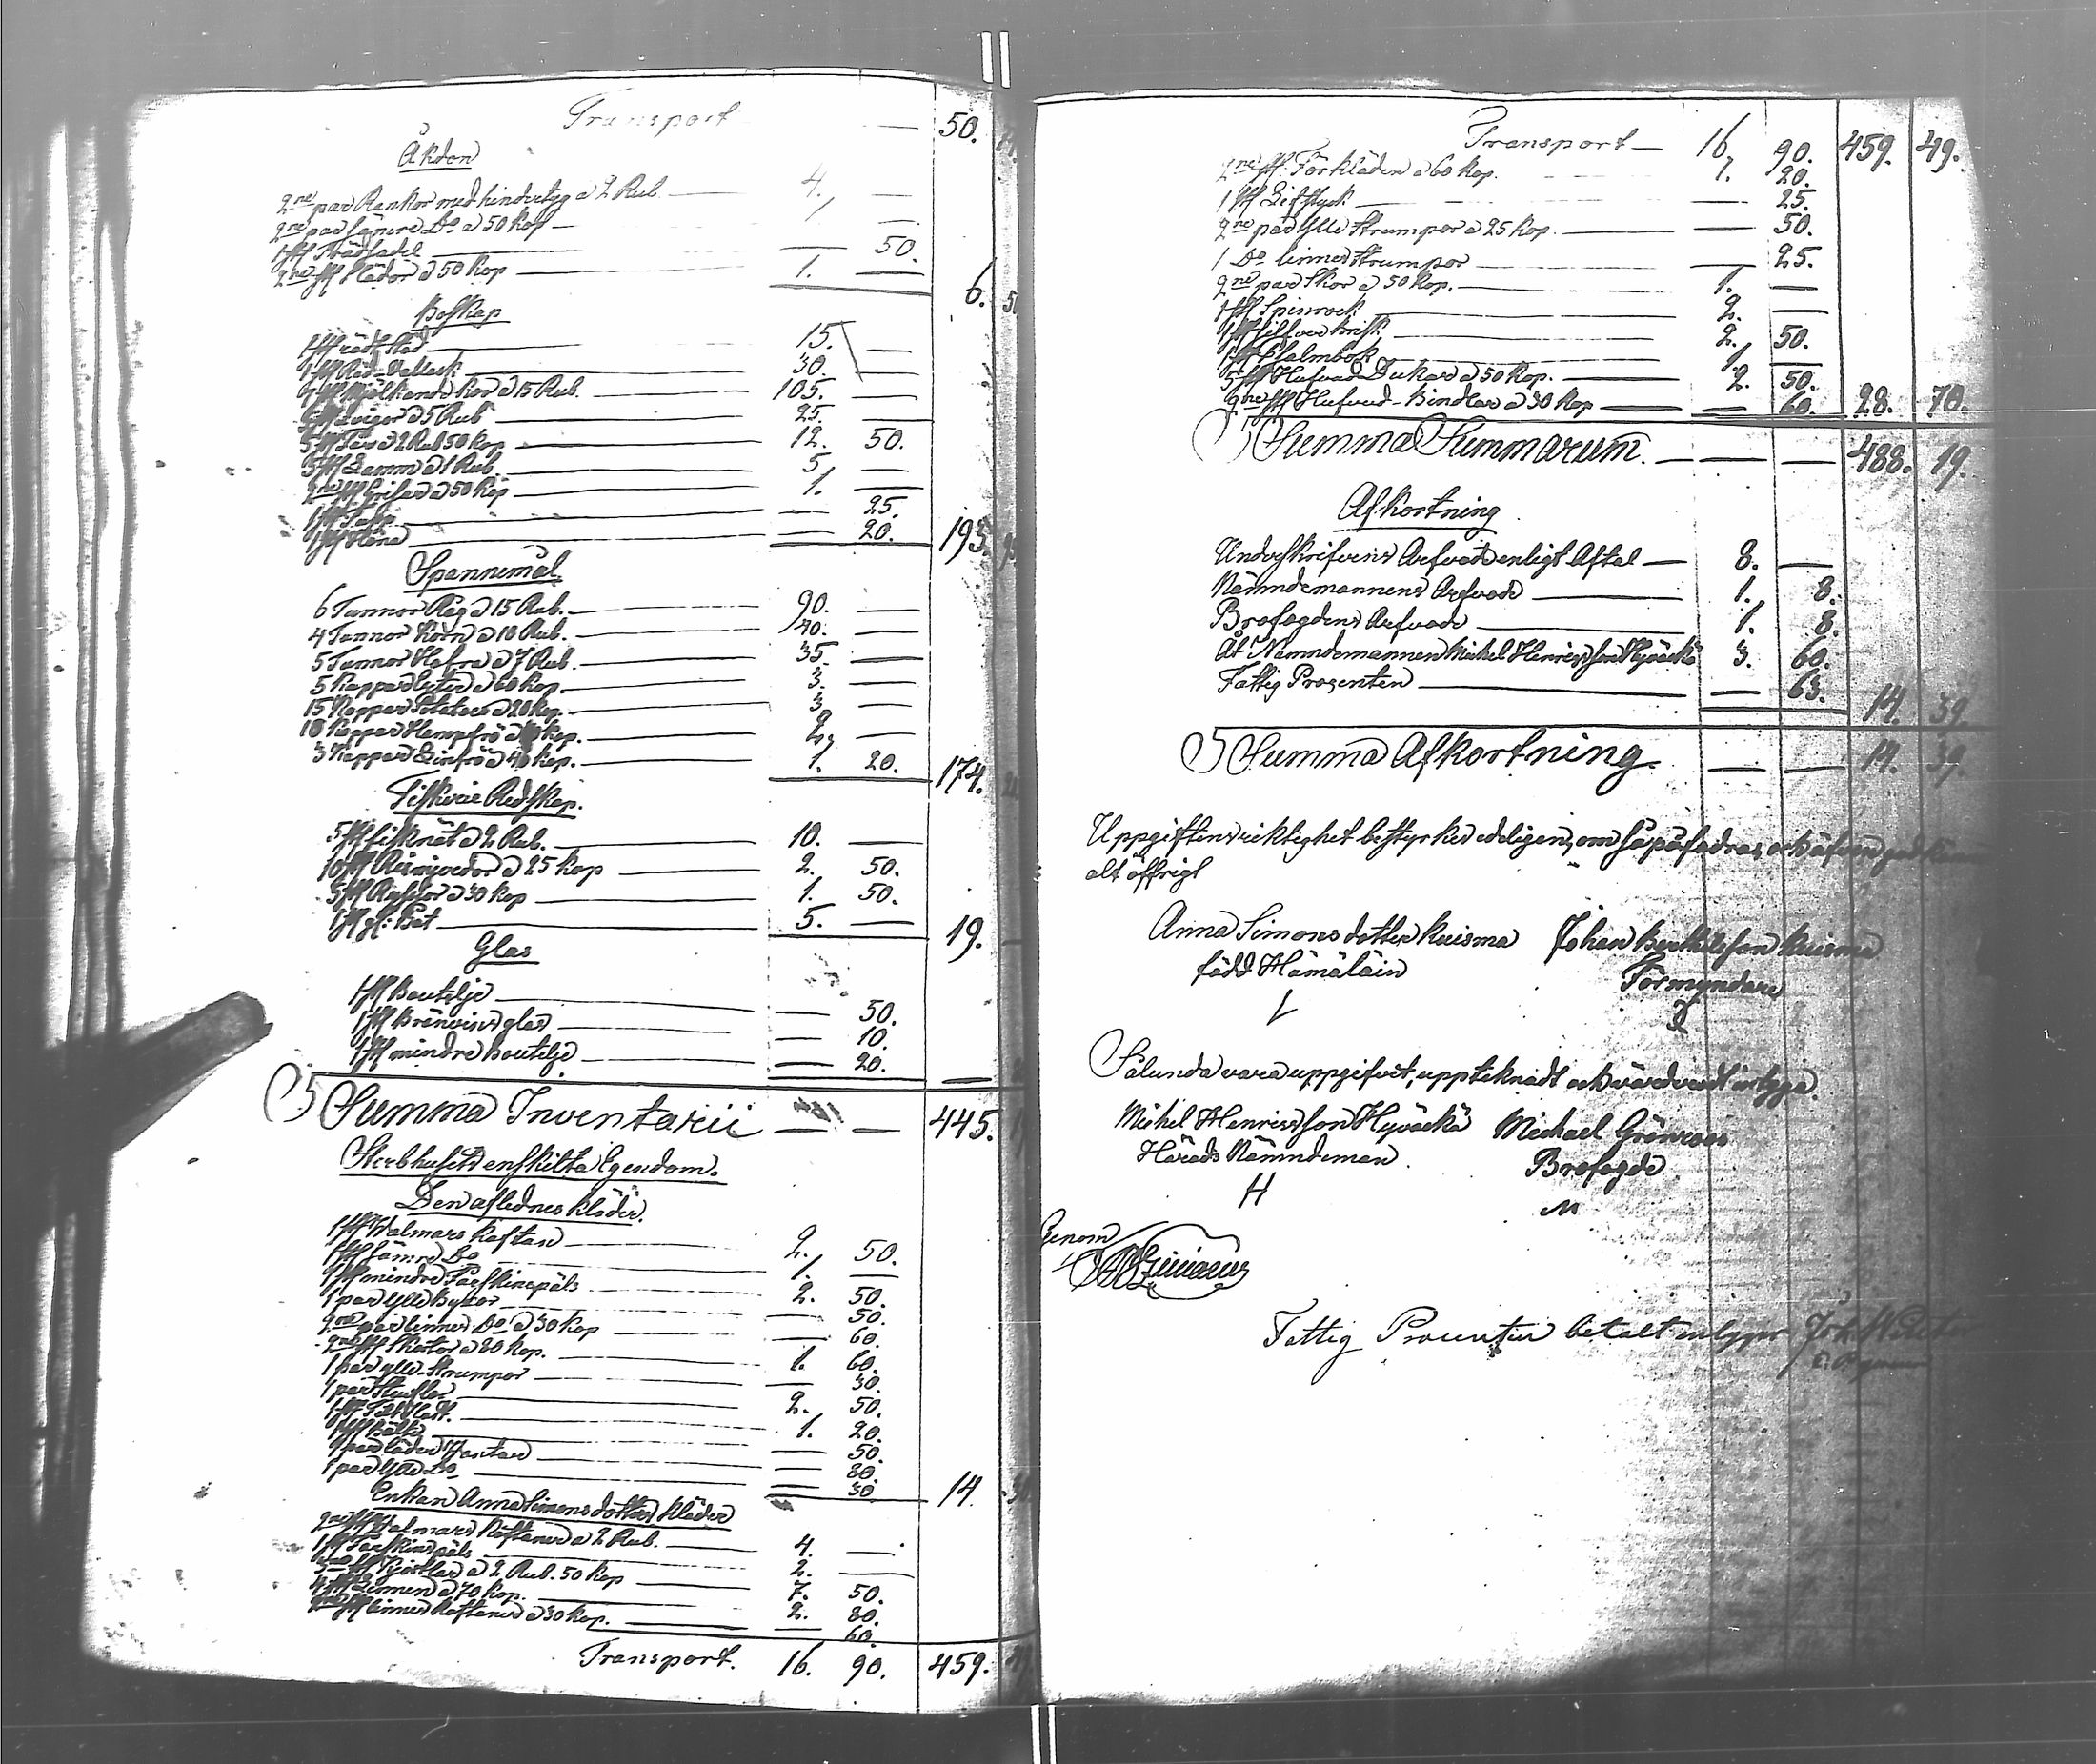 Transport — 50.
Åkdon
2ne par Rankor med hindertyg a 2 Rub. — 4. —
2ne par sämre Do a 50 Kop — 1. —
1 st Trädsadel — — 50.
2ne st Slädor a 50 Kop — 1. — 6.
Boskap
1 st röd Sto — 15. —
1 st Röd Vallack — 30. —
7 st Mjölkande Kor a 15 Rub. — 105. —
5 st Qvigor a 5 Rub — 25. —
5 st Får a 2 Rub 50 Kop — 12. 50.
5 st Lamm a 1 Rub. — 5. —
2ne st Grisar a 50 Kop — 1. —
1 st Tupp — — 25.
1 st Höna — — 20. 193.
Spannemål
6 Tunnor Råg a 15 Rub. — 90. —
4 Tunnor Korn a 10 Rub. — 40. —
5 Tunnor Hafra a 7 Rub. — 35. —
5 Kappar a 60 Kop. — 3. —
15 Kappar Potateer a 20 Kop. — 3. —
10 Kappar Hampfrö a Kop. — —
3 Kappar Linfrö a 40 Kop. — 1. 20. 174.
Fiskerie Redskap.
5 st fisknät a 2 Rub. — 10. —
10 st a 25 Kop — 2. 50.
5 st a 30 Kop — 1. 50.
1 st gl: Båt — 5. — 19.
Glas
1 st Boutelje — — 50.
1 st Bränvins glas — — 10.
1 st mindre Boutelje — — 20. —
Summa Inventarii — — 445.
Sterbhusets enskilta Egendom.
Den aflednes kläder.
1 st Walmars Kaftan — 2. 50.
1 st sämre Do — 1. —
1 st mindre Fårskinspäls — 2. 50.
1 par ylle Byxor — — 50.
2ne par linnes Do a 30 Kop — — 60.
2ne st Skortor a 80 Kop. — 1. 60.
1 par ylle Strumpor — — 30.
1 par Stuflor — 2. 50.
1 st Hatt. — 1. 20.
1 st Bälte — — 50.
1 par läder Vantar — — 80.
1 par Ylle Do — — 30. 14.
Enkan Anna Simonsdotters Kläder
2ne st Walmars Kaftaner a 2 Rub. — 4. —
1 st Fårskinspäls — 2. —
3ne st Kjortlar a 2 Rub. 50 Kop — 7. 50.
4 st Linnen a 70 Kop. — 2. 80.
2ne st linnes Kaftaner a 30 Kop. — — 60.
Transport. 16. 90. 459.
Transport — 16. 90. 459. 49.
2ne st: Förkläden a 60 Kop. — 1. 20.
1 st Lifstyck — — 25.
2ne par Ylle Strumpor a 25 Kop. — — 50.
1 Do linnes Strumpor — — 25.
2ne par Skor a 50 Kop. — 1. —
1 st Spinrock — 2. —
1 st silfver brisk — 2. 50.
1 st Psalmbok — 1. —
5 st Hufvud Dukar a 50 Kop. — 2. 50.
2ne st Hufvud-Bindlar a 30 Kop — — 60. 28. 70.
Summa Summarum. — — — 488. 19.
Afkortning
Underskrifvens Arfvode enligt Aftal — 8. —
Nämndemannens Arfvode — 1. 8.
Brofogdens Arfvode — 1. 8.
Åt Nämndemannen Mickel Henriksson Hyväckä 3. 60.
Fattig Prosenten — — 63. 14. 39.
Summa Afkortning. — — 14. 39.
Uppgiftens riktighet bestyrkes edeligen, om så påfodras, och äfven
alt öffrigt
Anna Simonsdotter Kuisma Johan Berthilsson Kuisma
född Hämäläin Förmyndare
Sålunda vara uppgifvet, upptecknadt och värderadt intyga.
Mickel Henriksson Hyväckä Michael Grönroos
Härads Nämndeman. Brofogde
H M
Genom
Fattig Procenten betalt intygar Joh.